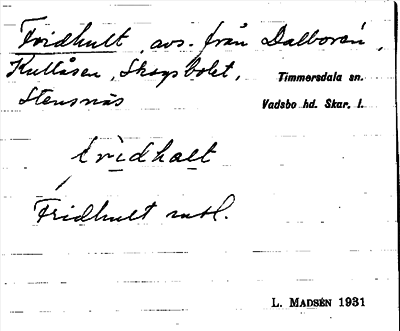 Fridhult, avs. från Dalborån,
Kullåsen, Skogsbolet, Timmersdala sn.
Stensnäs Vadsbo hd. Skar. l.
fridhalt
Fridhult mtl.
L. MADSÉN 1931